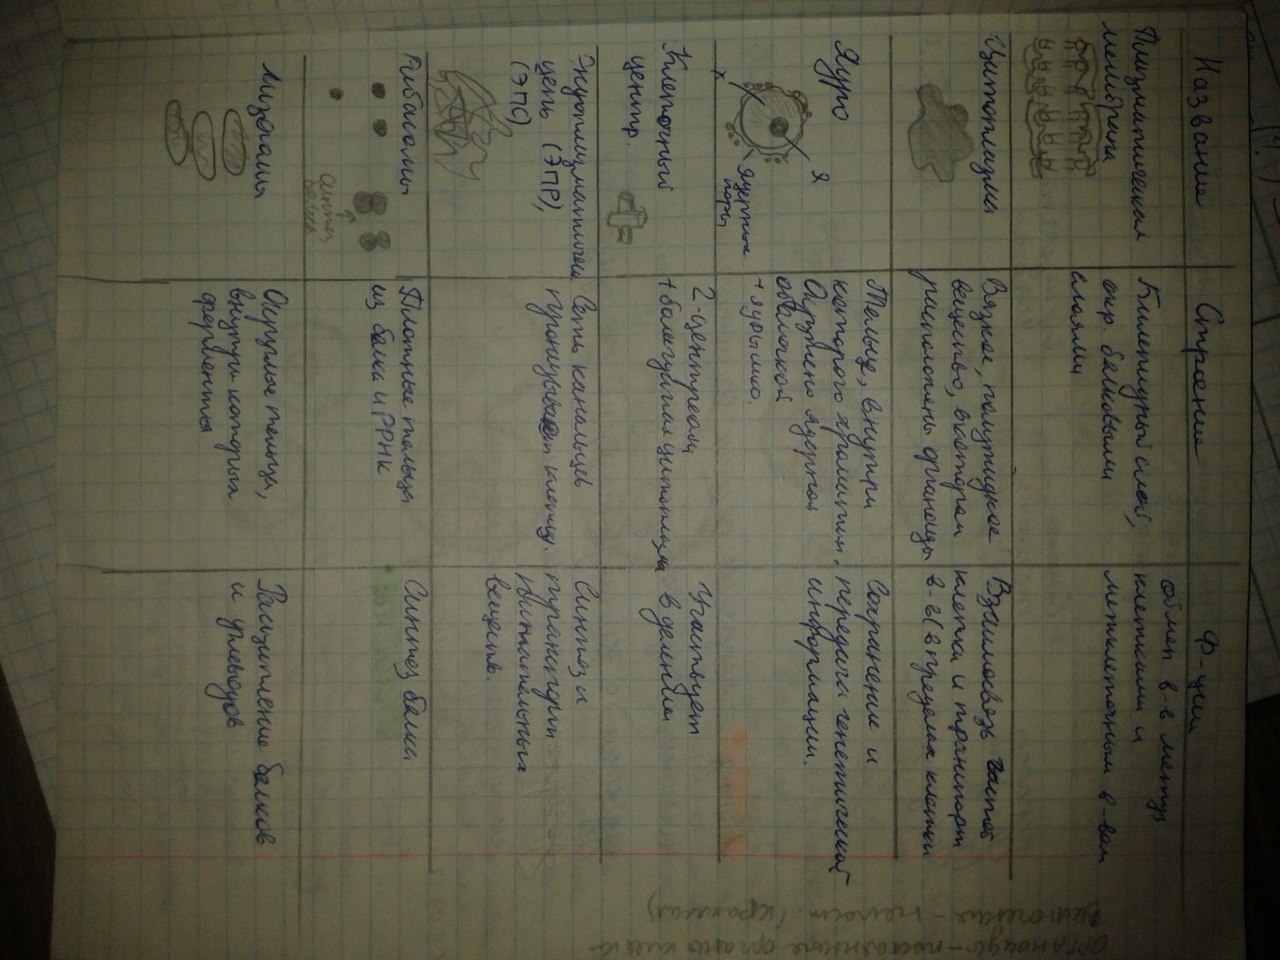 Название
Строение
Ф-ции
Плазматическая
мембрана
Билипидный слой,
окр. белковыми
слоями
обмен в-в между
клетками и
межклеточным в-вом
Цитоплазма
Вязкое, полужидкое
вещество, в котором
расположены органоиды
Взаимосвязь частей
клетки и транспорт
в-в (в пределах клетки
Ядро
я
х
Ядерные
поры
Тельце, внутри
которого хроматин.
Окружено ядерной
оболочкой
+ ядрышко.
Сохранение и
передача генетической
информации.
Клеточный
центр.
2-центреоли
+ болегустая цитоплазма
Участвует
в делении
Эндоплазматическ.
цепь (ЭПР),
(ЭПС)
Сеть канальцев
пронизывает клетку.
Синтез и
транспорт
питательных
веществ.
Рибосомы
синтез
белка
Плотные тельца
из белка и РРНК
Синтез белка
Лизосомы
Округлые тельца,
внутри которых
ферменты
Расщипление белков
и углеводов
органоиды-постоянные органы клетк.
Включения - непост. (крахмал)